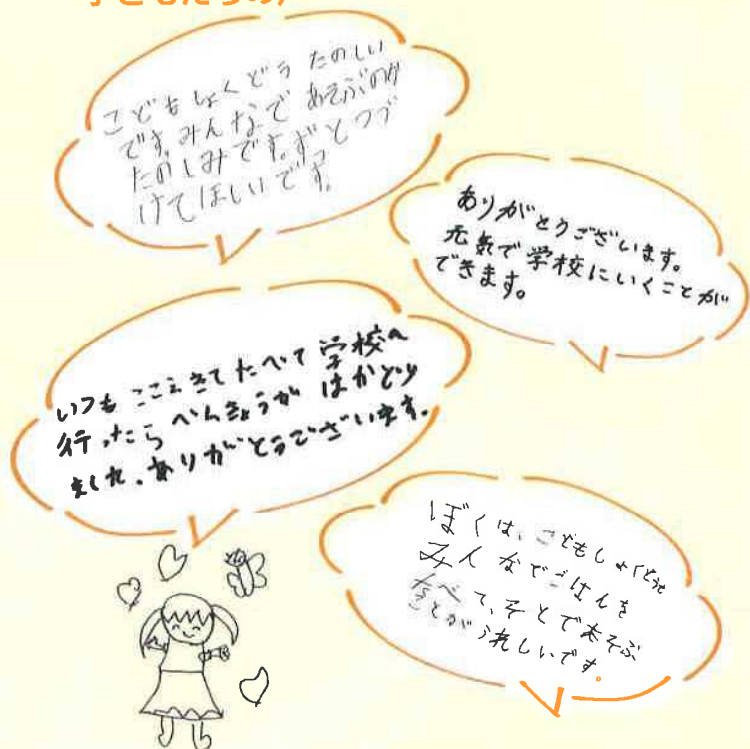 子どもたちの
こどもしょくどう たのしい
です。みんなで あそぶのが
たのしみです。ずっとつづ
けてほしいです。
ありがとうございます。
元気で学校にいくことが
できます。
いつも ここえきてたべて 学校へ
行ったら べんきょうが はかどり
ました。ありがとうございます。
ぼくは、こどもしょくどうで
みんなでごはんを
たべて、そとであそぶ
ことがうれしいです。